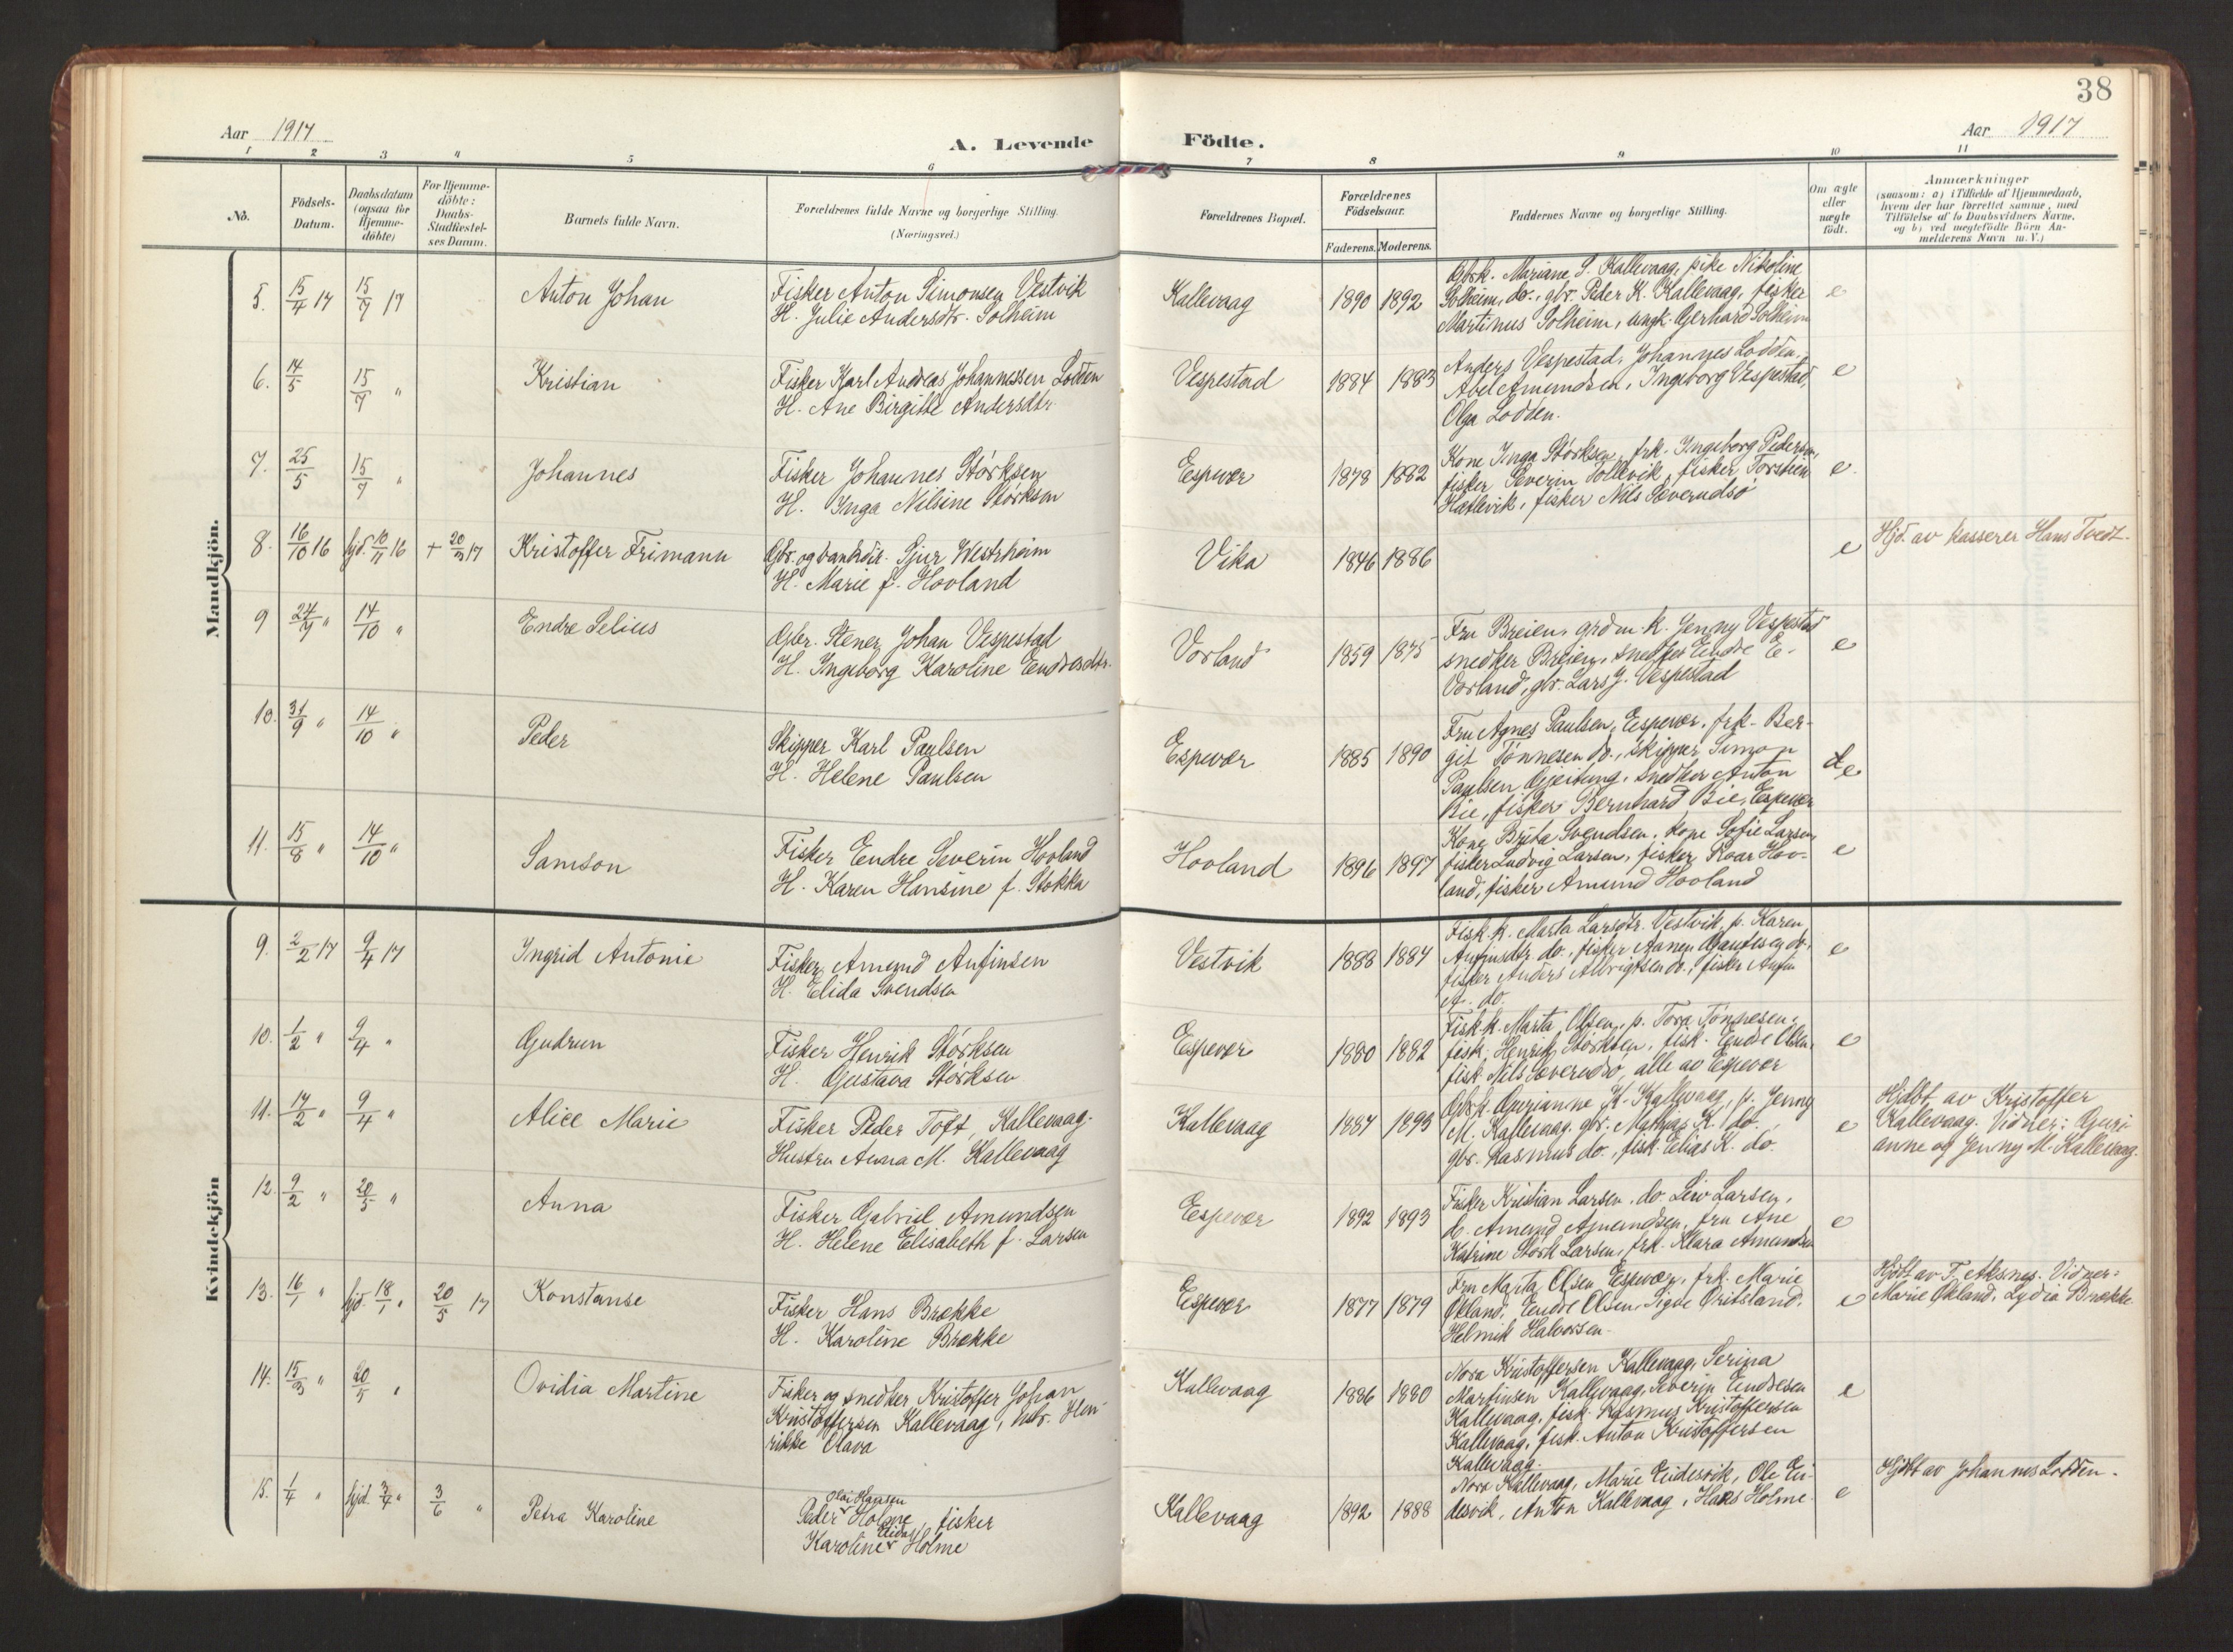 38
Aar 1917
A. Levende Födte.
Aar 1917
1 2 3 4 5 6 7 8 9 10 11
No.
Födsels-
Datum.
Daabsdatum
(ogsaa for
Hjemme-
döbte)
For Hjemme-
döbte:
Daabs-
Stadfæstel-
ses Datum.
Barnets fulde Navn.
Forældrenes fulde Navne og borgerlige Stilling.
(Næringsvei.)
Forældrenes Bopæl.
Forældrenes
Födselsaar.
Faderens. Moderens.
Faddernes Navne og borgerlige Stilling.
Om ægte
eller
uægte
födt.
Anmærkninger
(saasom: a) i Tilfælde af Hjemmedaab,
hvem der har forrettet samme, med
Tilföielse af to Daabsvidners Navne,
og b) ved uægtefödte Börn An-
melderens Navn m. V.)
Mandkjön.
5. 15/4 17 15/7 17 Anton Johan
Fisker Anton Simonsen Vestvik
H. Julie Andersdtr. Solheim
Kallevaag 1890 1892
Gbrk. Mariane S. Kallevaag, pike Nikoline
Solheim, do., gbr. Peder K. Kallevaag, fisker
Martinus Solheim, ungk. Gerhard Solheim
e
6. 14/5 15/7 " Kristian
Fisker Karl Andreas Johannessen Lodden
H. Ane Birgitte Andersdtr
Vespestad 1884 1883
Anders Vespestad, Johannes Lodden,
Abel Amundsen, Ingeborg Vespestad,
Olga Lodden.
e
7. 25/5 15/7 " Johannes
Fisker Johannes Störksen
H. Inga Nilsine Störksen
Espevær 1878 1882
Kone Inga Störksen, frk. Ingeborg Pedersen,
fisker Severin Tollevik, fisker Torstein
Hatlevik, fisker Nils Sæverudsö
e.
8. 16/10 16 hjd. 10/11 16 + 20/3 17 Kristoffer Frimann
Gbr. og bankdir. Sjur Westrheim
H. Marie f. Hovland
Vika 1846 1886
e
Hjd. av kasserer Hans Tvedt.
9 24/7 " 14/10 " Endre Selius
Gbr. Stener Johan Vespestad
H. Ingeborg Karoline Endresdtr.
Vorland 1859 1875
Fru Breien, grdm. k. Jenny Vespestad
snedker Breien, snedker Endre E.
Vorland, gbr. Lars J. Vespestad
e
10. 31/9 " 14/10 " Peder
Skipper Karl Paulsen
H. Helene Paulsen
Espevær 1885 1890
Fru Agnes Paulsen, Espevær, frk. Ber-
git Tönnesen do., skipper Simon
Paulsen Gjeitung, snedker Anton
Bie, fisker Bernhard Bie, Espevær
e
11. 15/8 " 14/10 " Samson
Fisker Endre Severin Hovland
H. Karen Hansine f. Stokka
Hovland 1896 1897
Kone Bryta Svendsen, kone Sofie Larsen,
fisker Ludvig Larsen, fisker Roar Hov-
land, fisker Amund Hovland
e
Kvindekjön
9. 2/2 17 9/4 17 Ingrid Antonie
Fisker Amund Anfinsen
H. Elida Svendsen
Vestvik 1888 1884
Fisk. k. Marta Larsdtr. Vestvik, p. Karen
Anfinsdtr. do., fisker Aanen Gautesen do.
fisker Anders Albrigtsen do., fisker Anfin
A. do.
e
10. 1/2 " 9/4 " Gudrun
Fisker Henrik Störksen
H. Gustava Störksen
Espevær 1880 1882
Fisk. k. Marta Olsen, p. Tora Tönnesen,
fisk. Henrik Störksen, fisk. Endre Olsen,
fisk. Nils Sæverudsö, alle av Espevær
e
11. 17/2 " 9/4 " Alice Marie
Fisker Peder Toft, Kallevaag.
Hustru Anna M. Kallevaag
Kallevaag 1887 1893
Gbrk. Gurianne K. Kallevaag, p. Jenny
M. Kallevaag, gbr. Mathias K. do.,
gbr. Rasmus do., fisk. Elias K. do.
e
Hjdbt. av Kristoffer
Kallevaag. Vidner: Guri-
anne og Jenny M. Kallevaag.
12. 9/2 " 20/5 " Anna
Fisker Gabriel Amundsen
H. Helene Elisabeth f. Larsen
Espevær 1892 1893
Fisker Kristian Larsen, do. Leiv Larsen,
do. Amund Amundsen, fru Ane
Katrine Störk Larsen, frk. Klara Amundsen
e
13. 16/1 " hjd. 18/1 " 20/5 17 Konstanse
Fisker Hans Brække
H. Karoline Brække
Espevær 1877 1879
Fru Marta Olsen Espevær, frk. Marie
Økland, Endre Olsen, Sigve Øritsland,
Helmik Halvorsen.
e
Hjdbt av T. Aksnes. Vidner:
Marie Økland, Lydia Brække
14. 15/3 " 20/5 " Ovidia Martine
Fisker og snedker Kristoffer Johan
Kristoffersen Kallevaag, hstr. Hen-
rikke Olava
Kallevaag 1886 1880
Nora Kristoffersen Kallevaag, Serina
Martinsen Kallevaag, Severin Endresen
Kallevaag, fisk. Rasmus Kristoffersen
Kallevaag, fisk. Anton Kristoffersen
Kallevaag.
e
15. 1/4 " hjd. 3/4 " 3/6 " Petra Karoline
Olai Hansen
Peder Holme, fisker
Elida
Karoline Holme
Kallevaag 1892 1888
Nora Kallevaag, Marie Eidesvik, Ole Ei-
desvik, Anton Kallevaag, Hans Holme.
e
Hjdbt av Johannes Lodden.